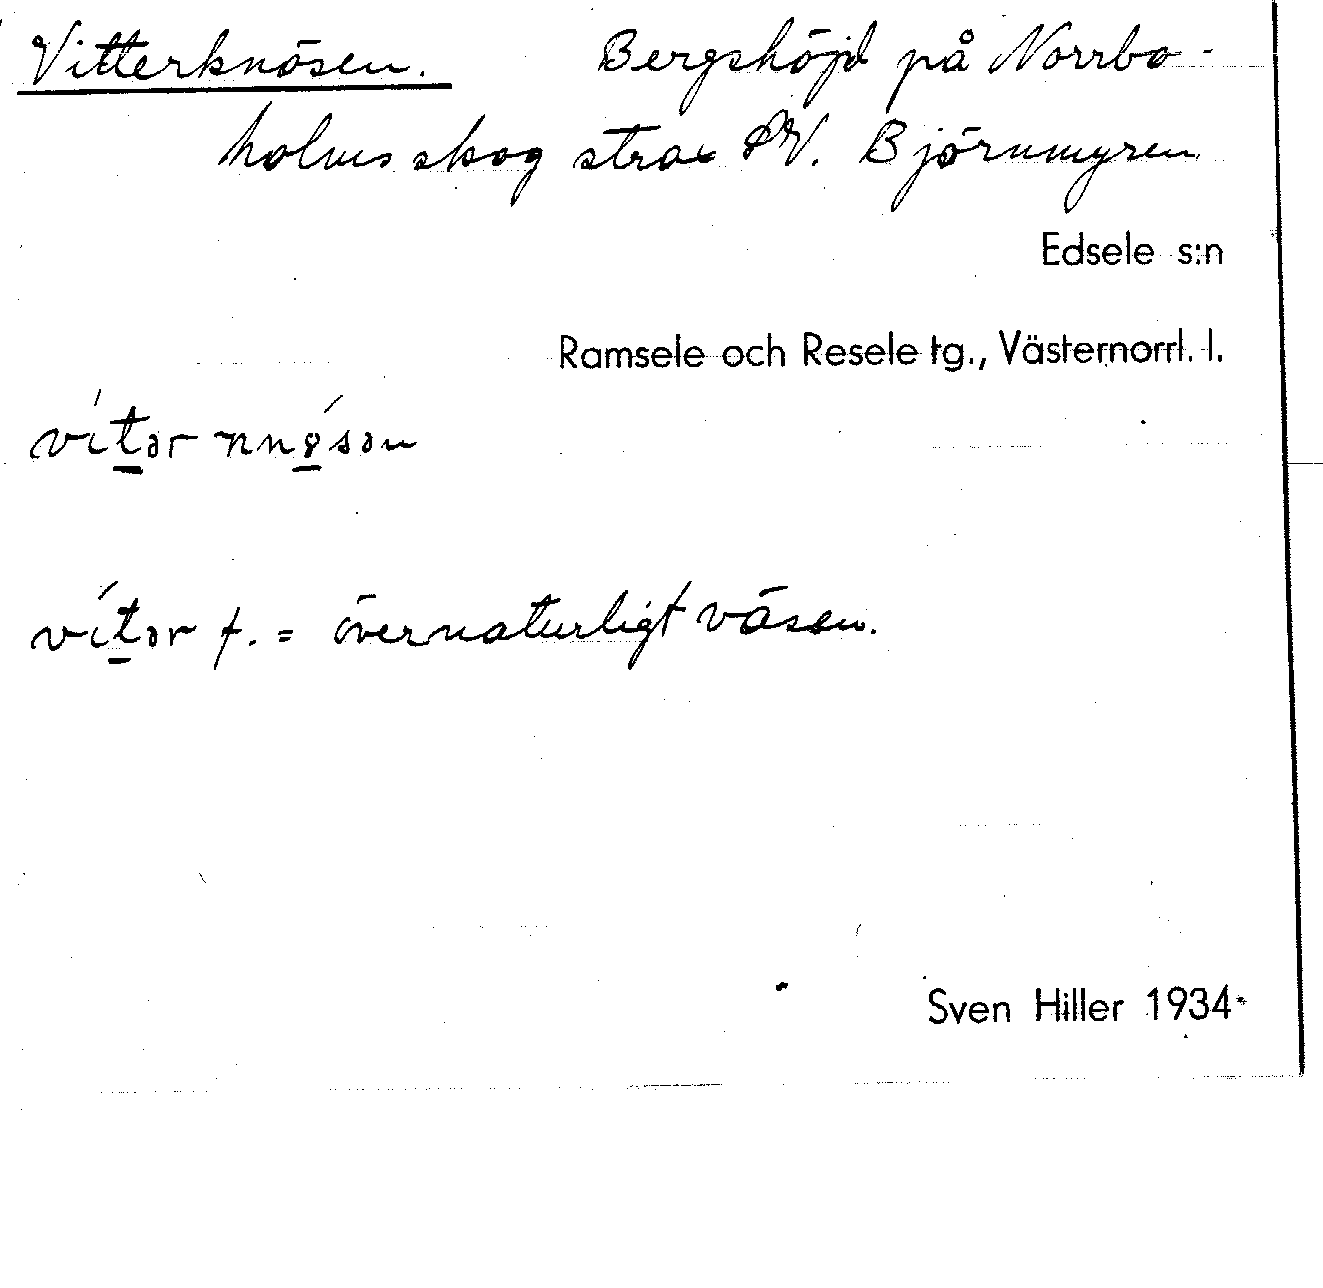 Vitterknösen. Bergshöjd på Norrbo-
holms skog strax SV. Björnmyren
Edsele s:n
Ramsele och Resele tg., Västernorrl. l.
vítər
vítər f. = övernaturligt väsen.
Sven Hiller 1934